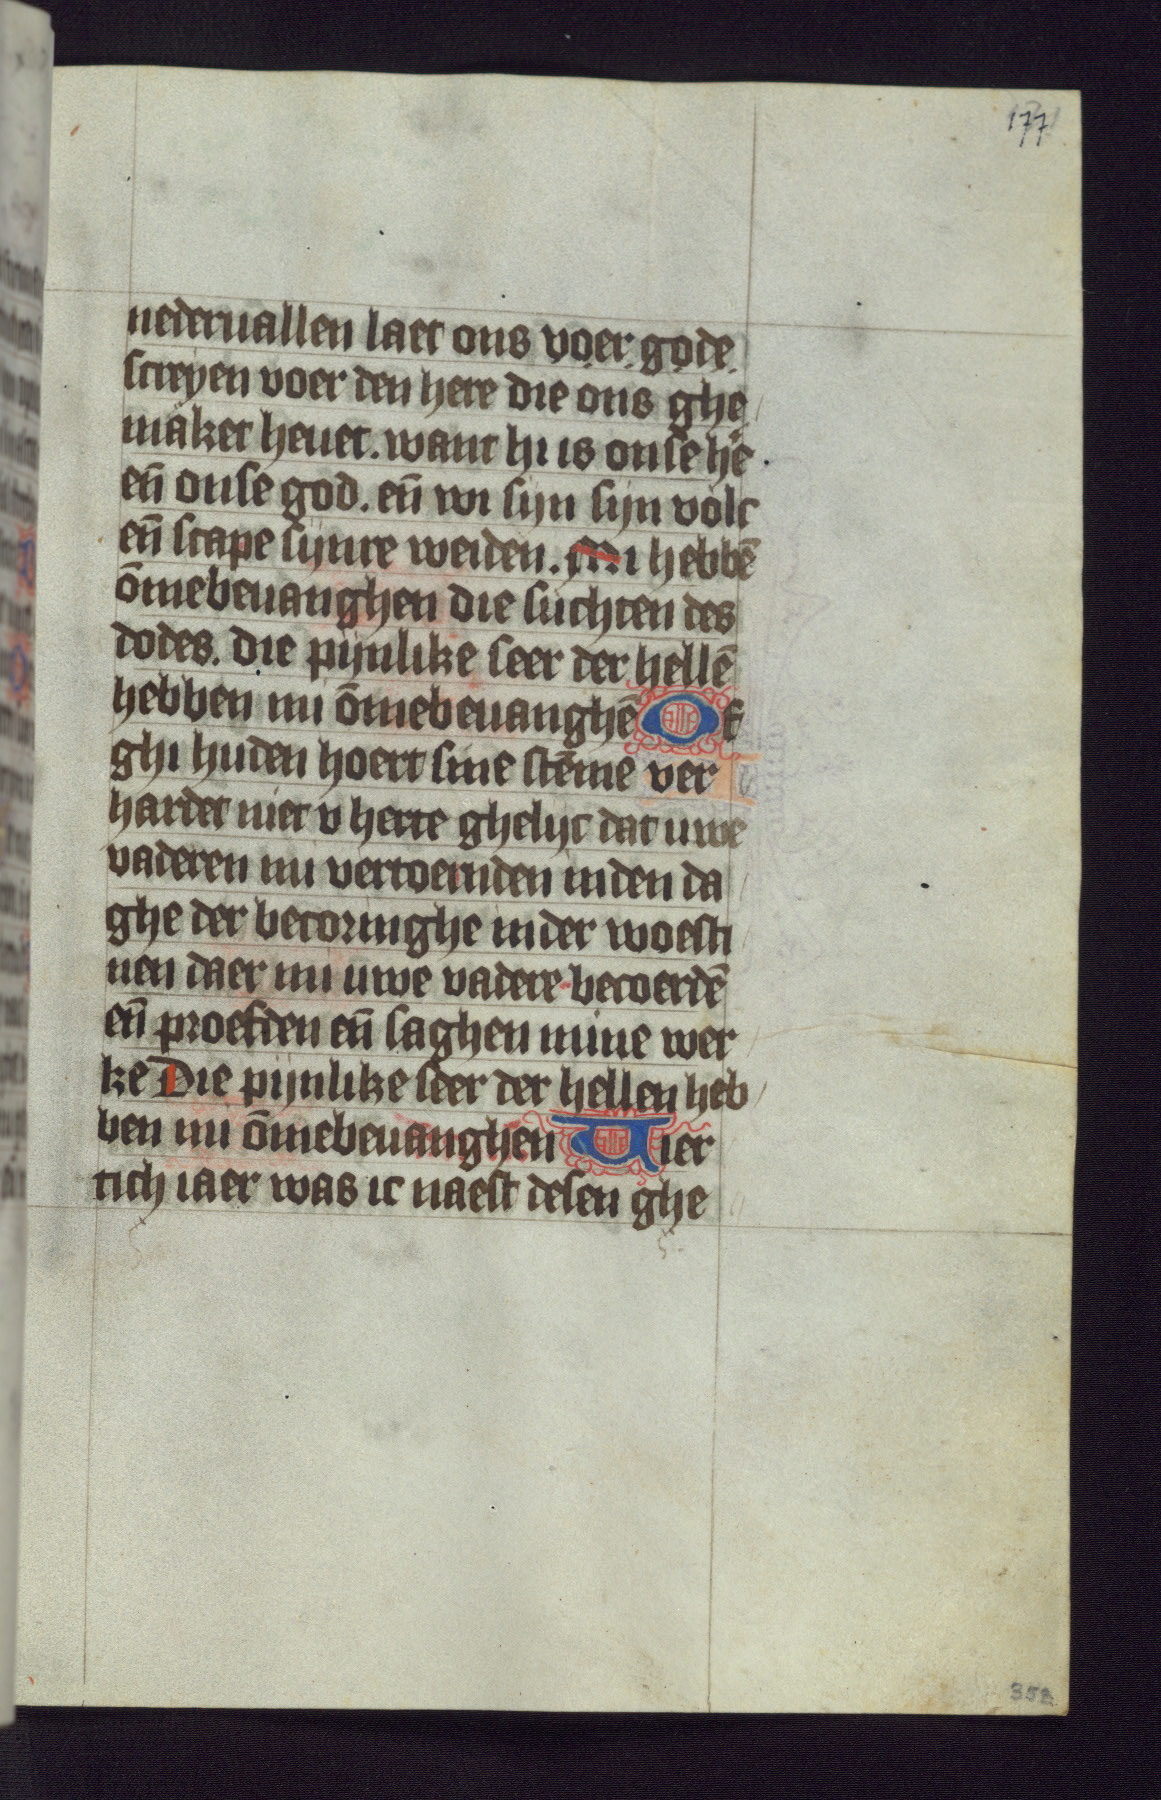 177
nederuallen laet ons voer gode
screyen voer den here die ons ghe
maket heuet. want hi is onse he
en̄ onse god. en̄ wi sijn sijn volc
en̄ scape sijnre weiden. Mi hebbē
ōmebeuanghen die suchten des
dodes. die pijnlike seer der hellē
hebben mi ōmebeuanghē Of
ghi huden hoert sine stēme ver
hardet niet v herte ghelijc dat uwe
vaderen mi vertoernden inden da
ghe der becoringhe inder woesti
nen daer mi uwe vadere becoerdē
en̄ proefden en̄ saghen mine wer
ke Die pijnlike seer der hellen heb
ben mi ōmebeuanghen Vier
tich iaer was ic naest desen ghe
352